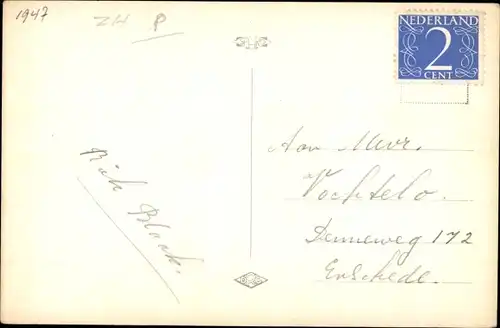 1947
ZH P
NEDERLAND
2
CENT
Aan Mevr.
Vochtelo.
Denneweg 172
Enschede.
Riek Blaak.